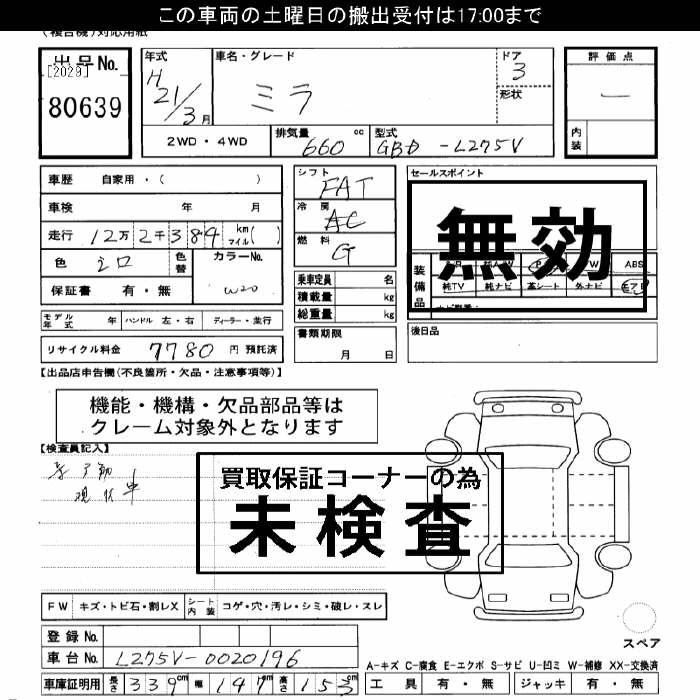 この車両の土曜日の搬出受付は17:00まで
(複合機)対応用紙
出品No.
[2029]
80639
年式
H
21/3月
車名・グレード
ミラ
ドア
3
形状
評価点
―
内装
2WD・4WD
排気量 660 cc
型式 GBD-L275V
車歴 自家用・( )
車検 年 月
走行 12万2千384 km マイル( )
色 シロ 色替
カラーNo.
W20
保証書 有・無
モデル年式 年 ハンドル 左・右 ディーラー・並行
リサイクル料金 7780 円 預託済
シフト FAT
冷房 AC
燃料 G
乗車定員 名
積載量 kg
総重量 kg
書類期限
月 日
セールスポイント
無効
装備品
ABS
純TV 純ナビ 革シート 外ナビ エアB
後日品
【出品店申告欄(不良箇所・欠品・注意事項等)】
機能・機構・欠品部品等は
クレーム対象外となります
【検査員記入】
現状車
買取保証コーナーの為
未検査
FW キズ・トビ石・割レX シート内装 コゲ・穴・汚レ・シミ・破レ・スレ
登録No.
車台No. L275V-0020196
車庫証明用 長さ 339cm 幅 147cm 高さ 153cm
スペア
A-キズ C-腐食 E-エクボ S-サビ U-凹ミ W-補修 XX-交換済
工具 有・無 ジャッキ 有・無